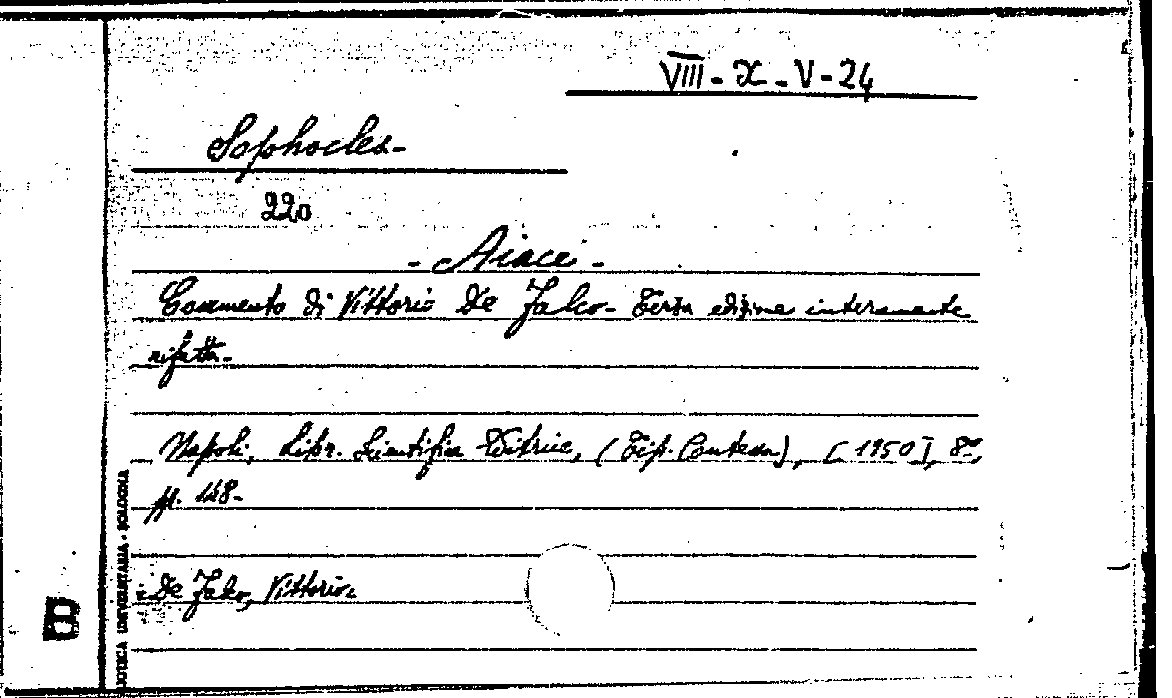 VIII - X - V - 24
Sophocles -
220
- Aiace -
Commento di Vittorio De Falco - Terza edizione interamente
rifatta -
Napoli, Libr. Scientifica Editrice, (Tip. Contessa), [1950], 8°,
pp. 148 -
De Falco, Vittorio.
BIBLIOTECA UNIVERSITARIA - BOLOGNA